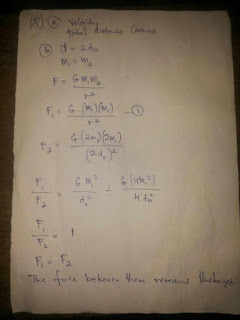 (a) velocity
total distance covered
(b) d = 2d₀
m₁ = m₂
F = G m₁ m₂ / r²
F₁ = G (m₁)(m₁) / r² — (i)
F₂ = G (2m₁)(2m₁) / (2d₀)²
F₁ / F₂ = G m₁² / d₀² ÷ G (4m₁²) / 4d₀²
F₁ / F₂ = 1
F₁ = F₂
The force between them remains Unchanged